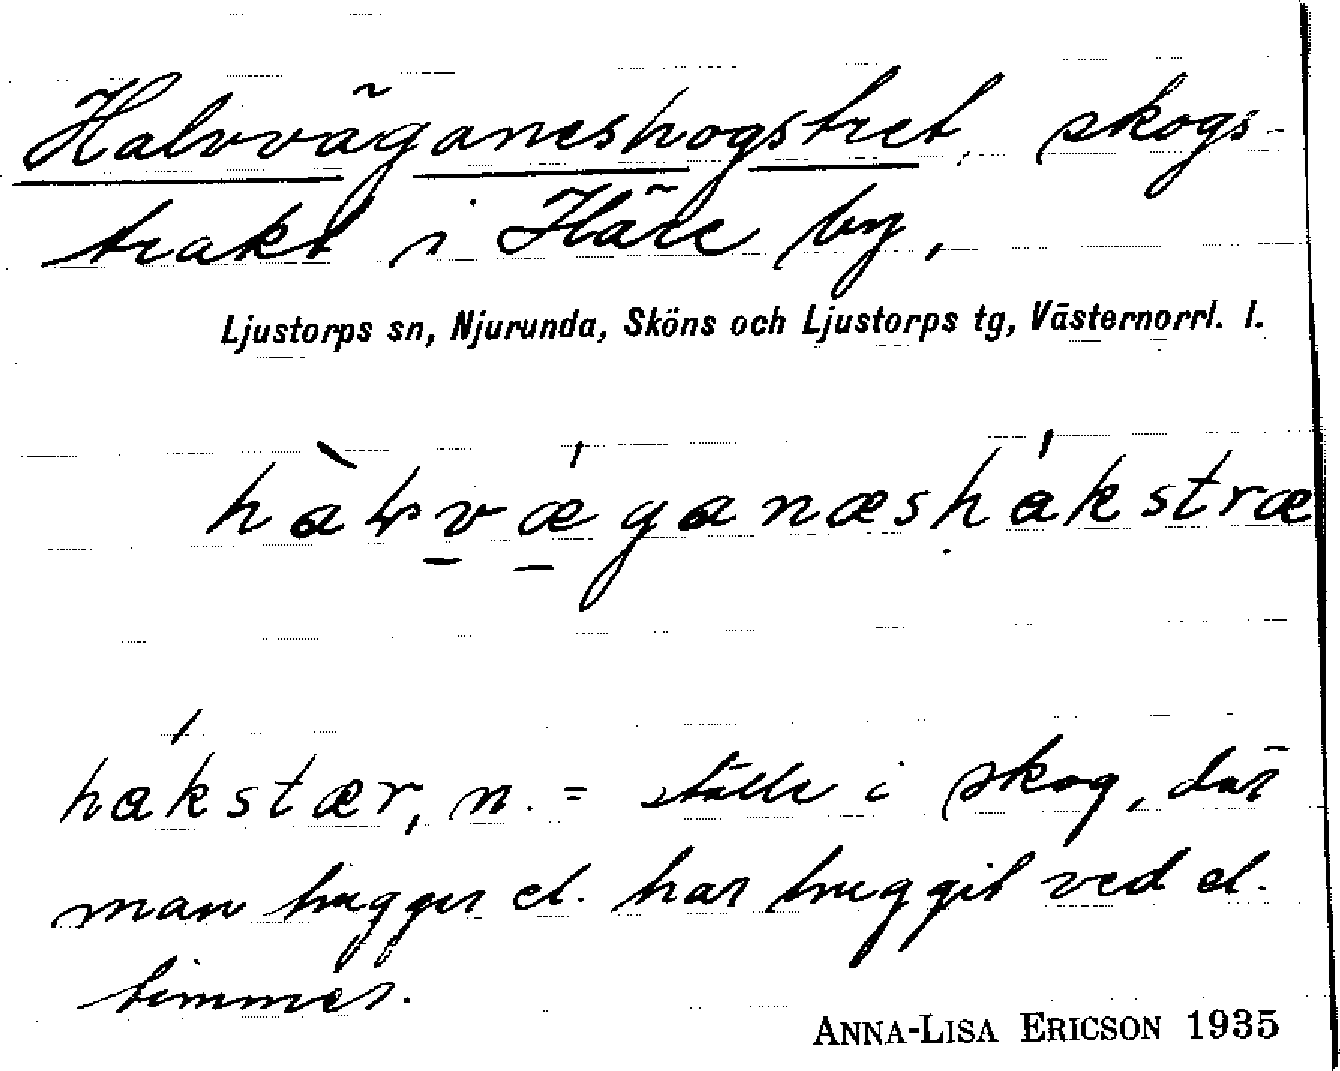 Halvväganeshogstret, skogs-
trakt i Häre by,
Ljustorps sn, Njurunda, Sköns och Ljustorps tg, Västernorrl. l.
hàƚvæganæshákstræ
hákstær, n. = ställe i skog, där
man hugger el. har huggit ved el.
timmer.
ANNA-LISA ERICSON 1935